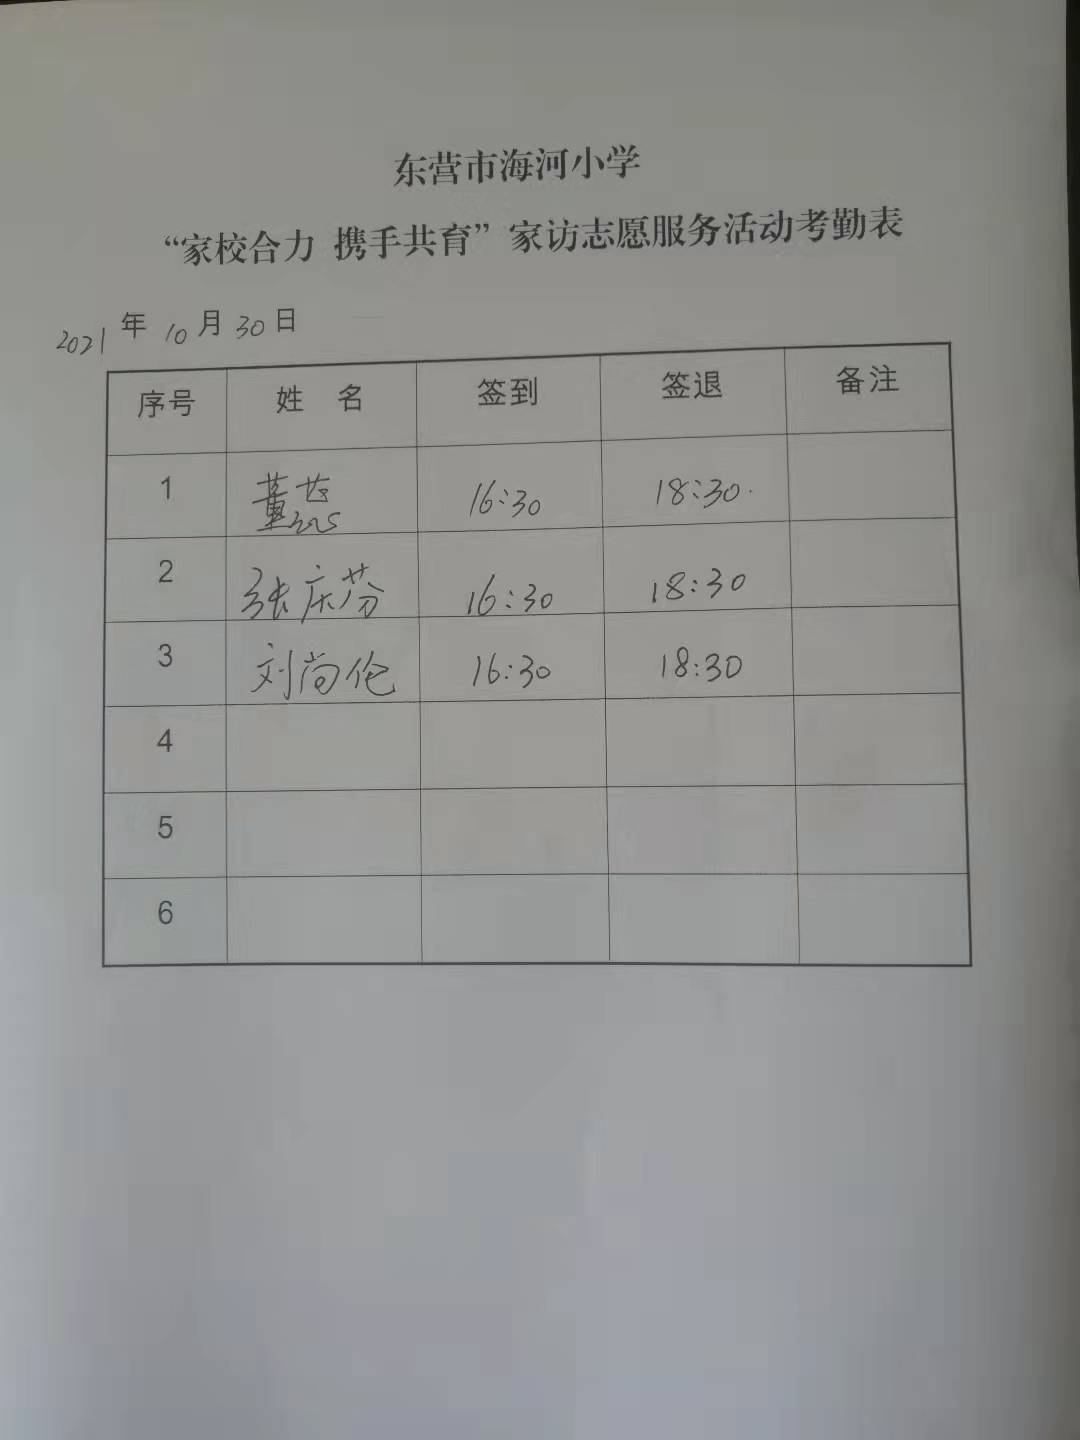 东营市海河小学
“家校合力 携手共育”家访志愿服务活动考勤表
2021年10月30日
序号 姓 名 签到 签退 备注
1 董 16:30 18:30
2 张庆芬 16:30 18:30
3 刘尚伦 16:30 18:30
4
5
6